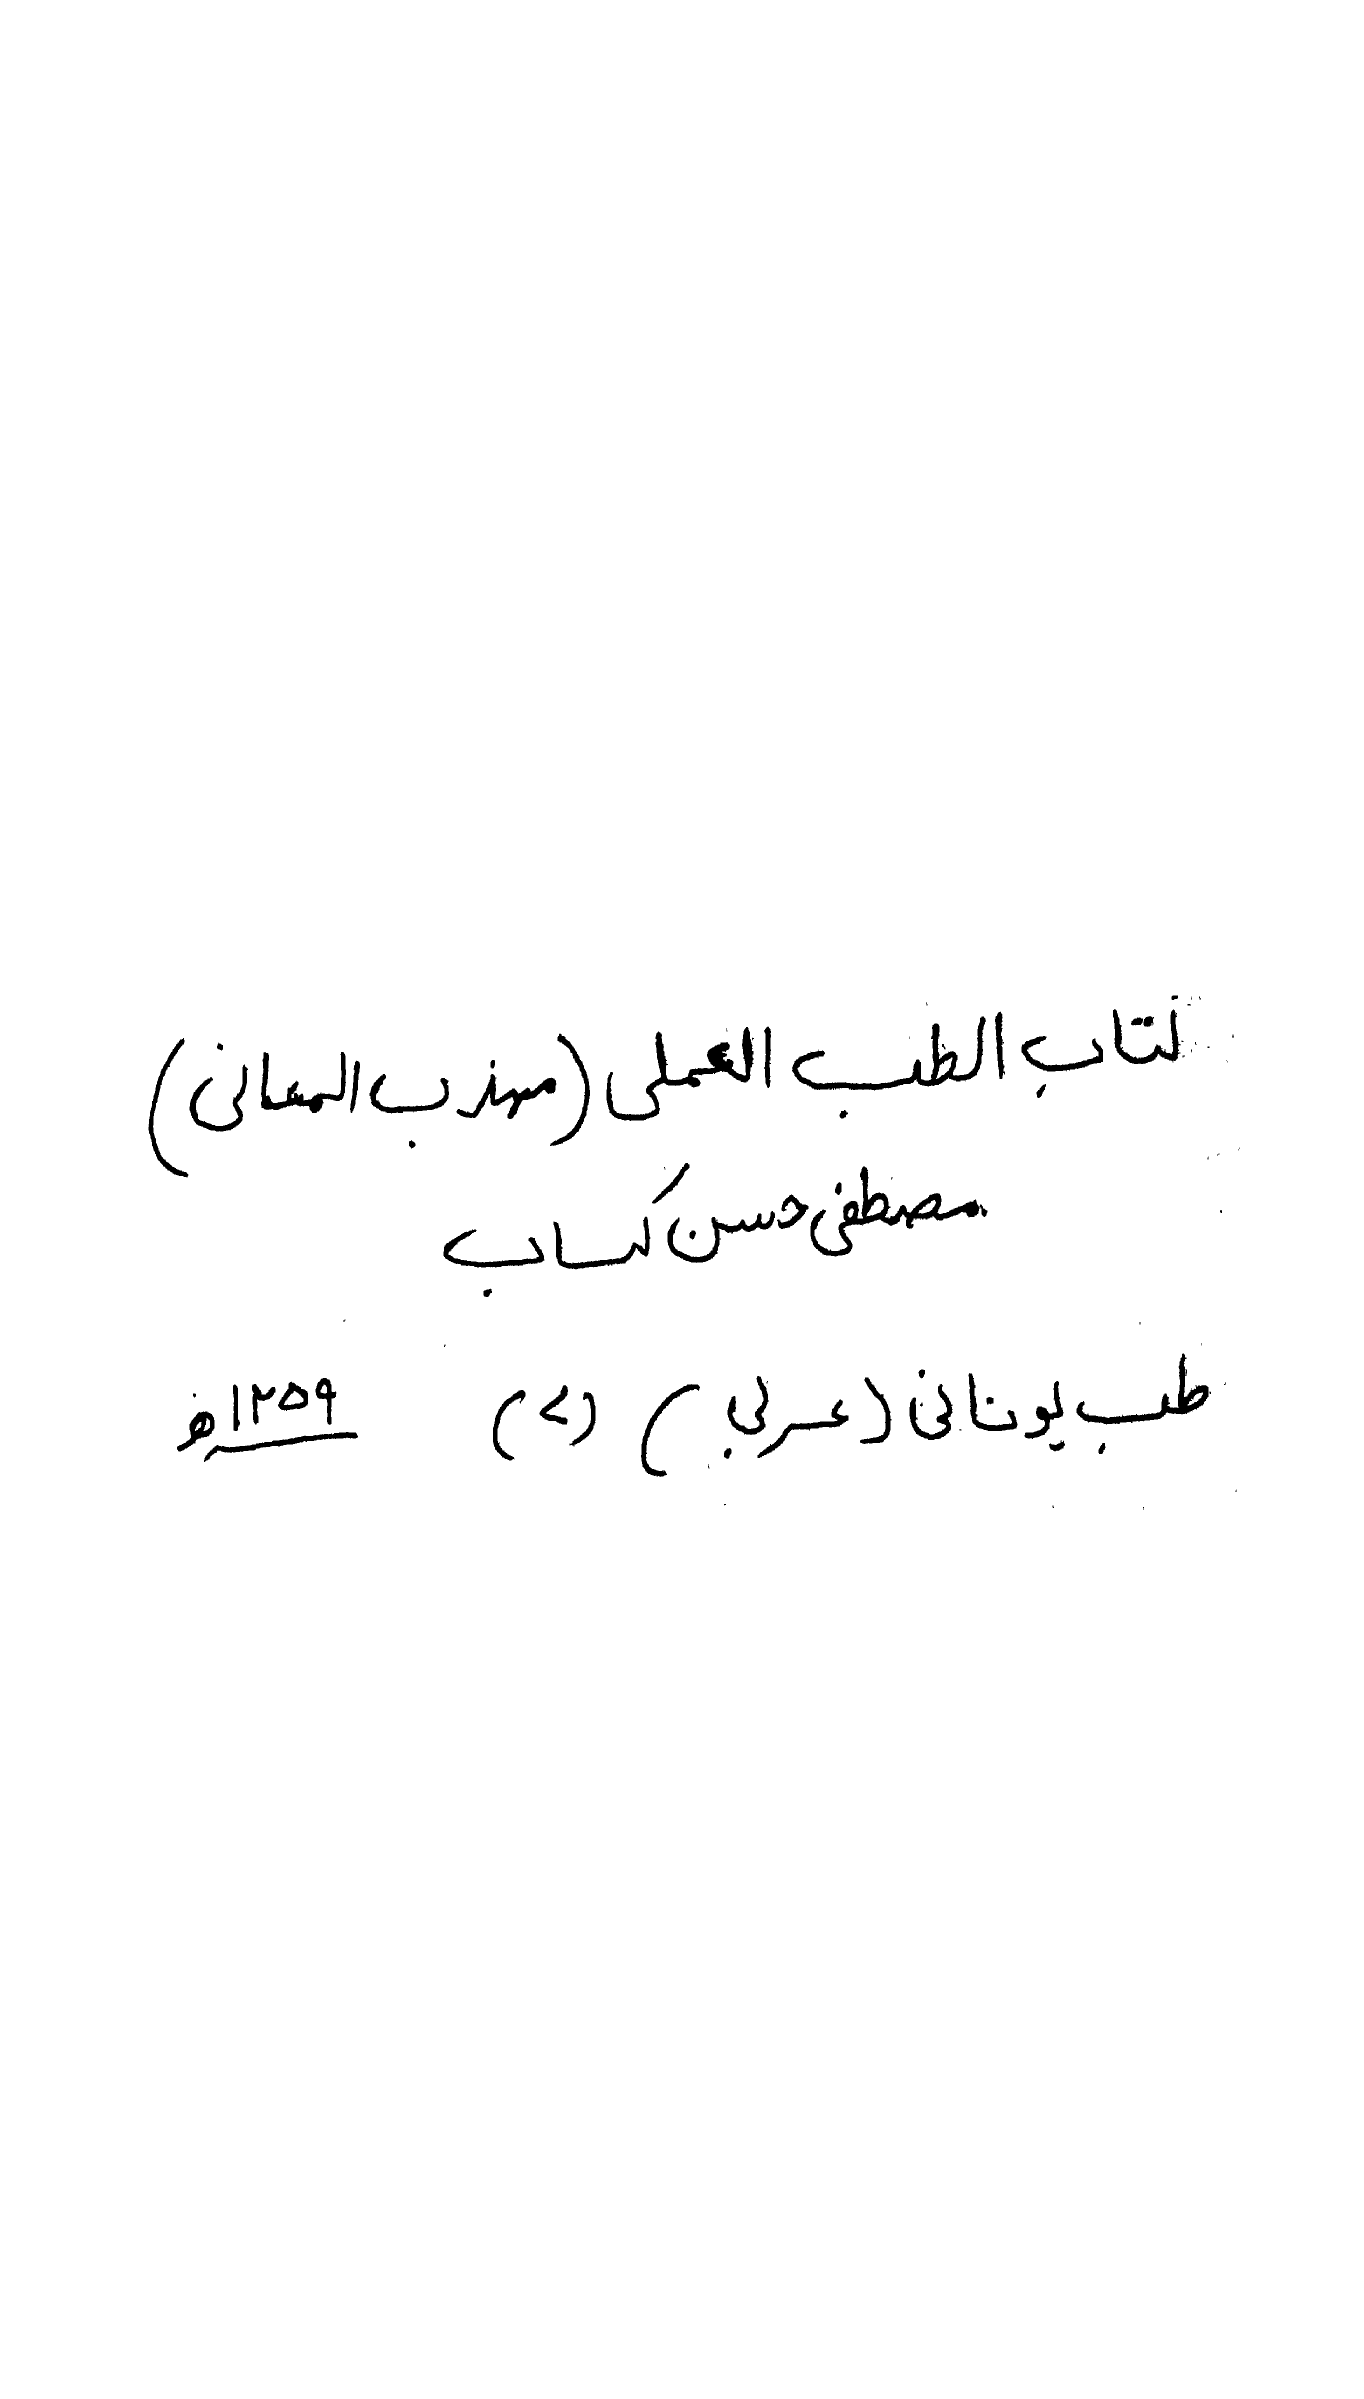 كتاب الطب العملى (مهذب المعانى)
مصطفى حسن كساب
طب يونانى (عربي) (٧) ١٢٥٩ھ